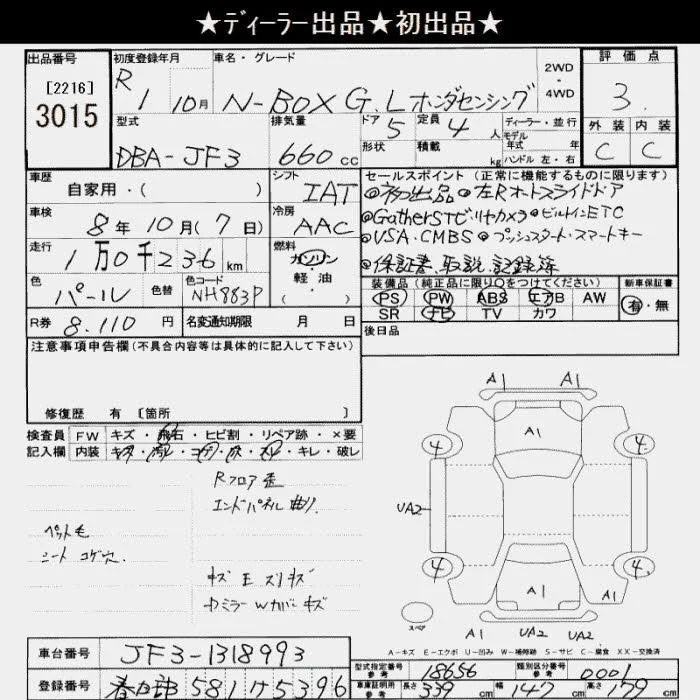 ★ディーラー出品★初出品★
出品番号
[2216]
3015
初度登録年月
R 1 10月
車名・グレード
N-BOX G.L ホンダセンシング
2WD・4WD
評価点
3
外装 内装
C C
型式
DBA-JF3
排気量
660 cc
ドア
5
形状
定員
4人
積載 kg
ディーラー・並行
モデル年式 年
ハンドル 左・右
車歴
自家用・( )
シフト
IAT
車検
8年10月(7日)
冷房
AAC
走行
1万0千236 km
燃料
ガソリン・軽油
( )
色
パール
色替
色コード
NH883P
R券 8.110 円
名変通知期限 月 日
セールスポイント (正常に機能するものに限ります)
◎初出品 ◎左Rオートスライドドア
◎GathersTVリヤカメラ ◎ビルトインETC
◎VSA.CMBS ◎プッシュスタート・スマートキー
◎保証書、取説、記録簿
装備品 (純正品に限り○をつけてください)
PS PW ABS エアB AW
SR ナビ TV カワ
新車保証書
有・無
後日品
注意事項申告欄(不具合内容等は具体的に記入して下さい)
修復歴 有 [箇所 ]
検査員記入欄
FW キズ・飛石・ヒビ割・リペア跡・×要
内装 キズ・汚レ・コゲ・穴・スレ・キレ・破レ
Rフロア歪
エンドパネル曲り
ペット毛
シート コゲ穴
キズ スリキズ
ミラーWカバーキズ
A1 A1
A1
4 4
UA2
4 4
A1 A1
スペア
A1 UA2 UA2
A-キズ E-エクボ U-凹み W-補修跡 S-サビ C-腐食 XX-交換済
車台番号 JF3-1318993
登録番号 春日部 581 5396
型式指定番号 参考 18656
類別区分番号 参考 0001
車庫証明用 参考 長さ 339 cm 幅 147 cm 高さ 179 cm